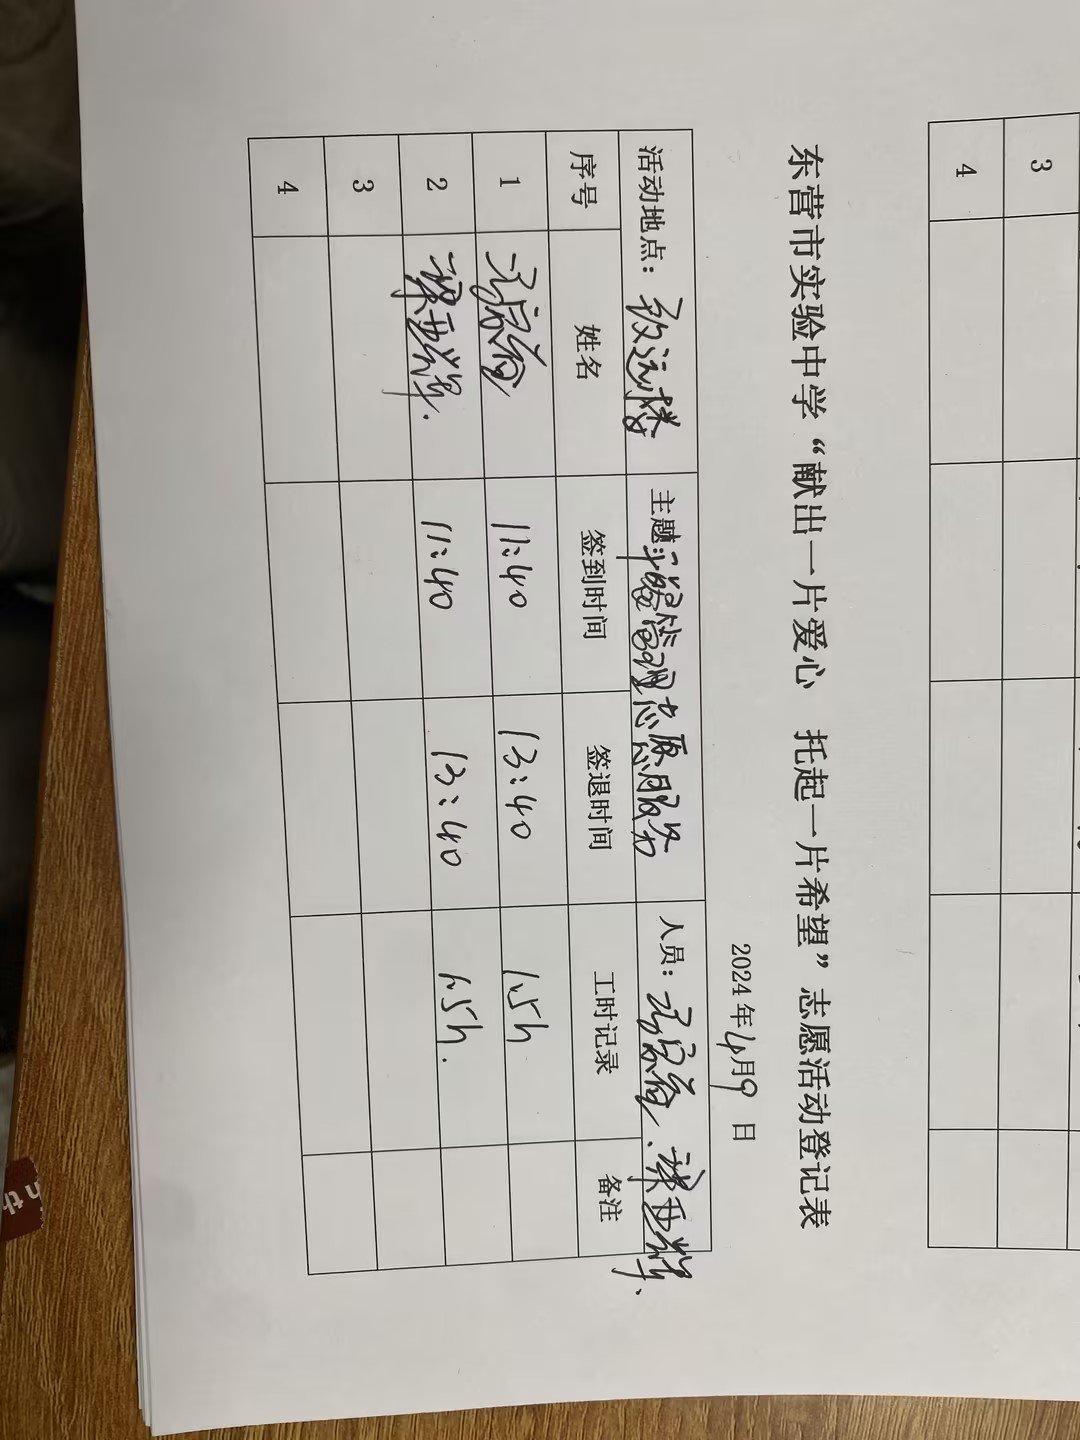 3
4
东营市实验中学“献出一片爱心 托起一片希望”志愿活动登记表
2024年4月9日
活动地点：致远楼 主题 午餐管理志愿服务 人员：
序号 姓名 签到时间 签退时间 工时记录 备注
1 11:40 13:40 1.5h
2 梁亚辉. 11:40 13:40 1.5h.
3
4